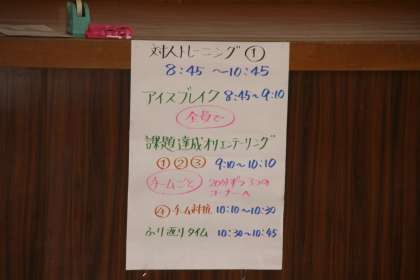 対人トレーニング①
8:45 ～10:45
アイスブレイク 8:45～9:10
全員で
課題達成オリエンテーリング
①②③ 9:10～10:10
チームごと 20分ずつ3つの
コーナーへ
④チーム対抗 10:10～10:30
ふり返りタイム 10:30～10:45